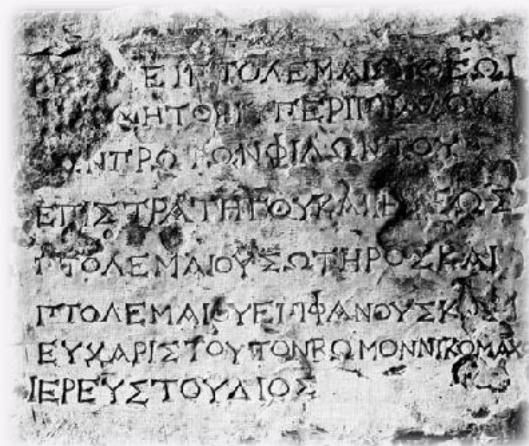 ΠΤΟΛΕΜΑΙΩΙΘΕΩΙ
ΥΠΕΡΙΠΠΑΛΟΥ
ΤΩΝΠΡΩΤΩΝΦΙΛΩΝΤΟΥ
ΕΠΙΣΤΡΑΤΗΓΟΥΚΑΙΙΕΡΕΩΣ
ΠΤΟΛΕΜΑΙΟΥΣΩΤΗΡΟΣΚΑΙ
ΠΤΟΛΕΜΑΙΟΥΕΠΙΦΑΝΟΥΣΚΑΙ
ΕΥΧΑΡΙΣΤΟΥΤΟΝΒΩΜΟΝΝΙΚΟΜΑΧ
ΙΕΡΕΥΣΤΟΥΔΙΟΣ